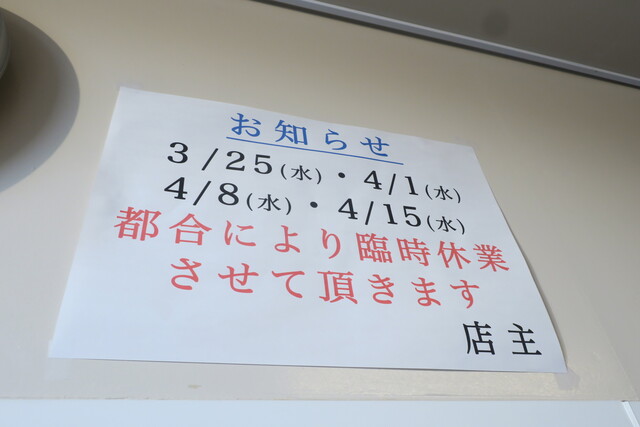 お知らせ
3/25(水)・4/1(水)
4/8(水)・4/15(水)
都合により臨時休業
させて頂きます
店主